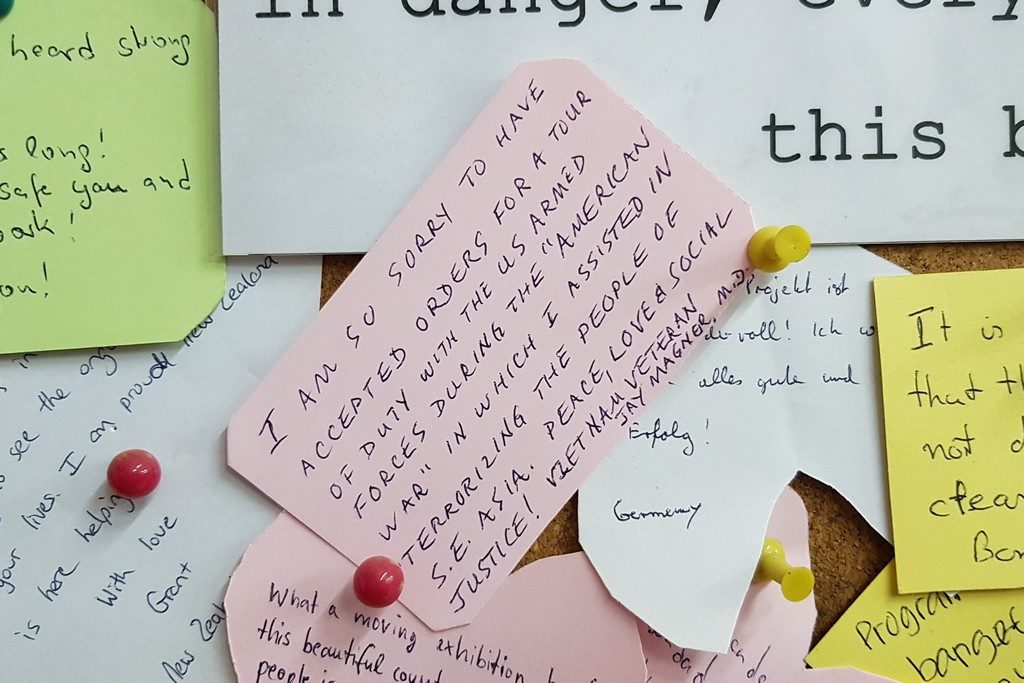 in danger, every
this b
heard strong
long!
safe you and
on!
I AM SO SORRY TO HAVE
ACCEPTED ORDERS FOR A TOUR
OF DUTY WITH THE US ARMED
FORCES DURING THE "AMERICAN
WAR" IN WHICH I ASSISTED IN
TERRORIZING THE PEOPLE OF
S.E. ASIA. PEACE, LOVE & SOCIAL
JUSTICE! VIETNAM VETERAN
JAY MAGNER, M.D.
see the
your lives. I am proud New Zealand
is here helping
With love
Grant
New Zeal
Projekt ist
voll! Ich
alles gute und
Erfolg!
Germany
It is
that th
not d
clear
What a moving exhibition
this beautiful count
people is
Program